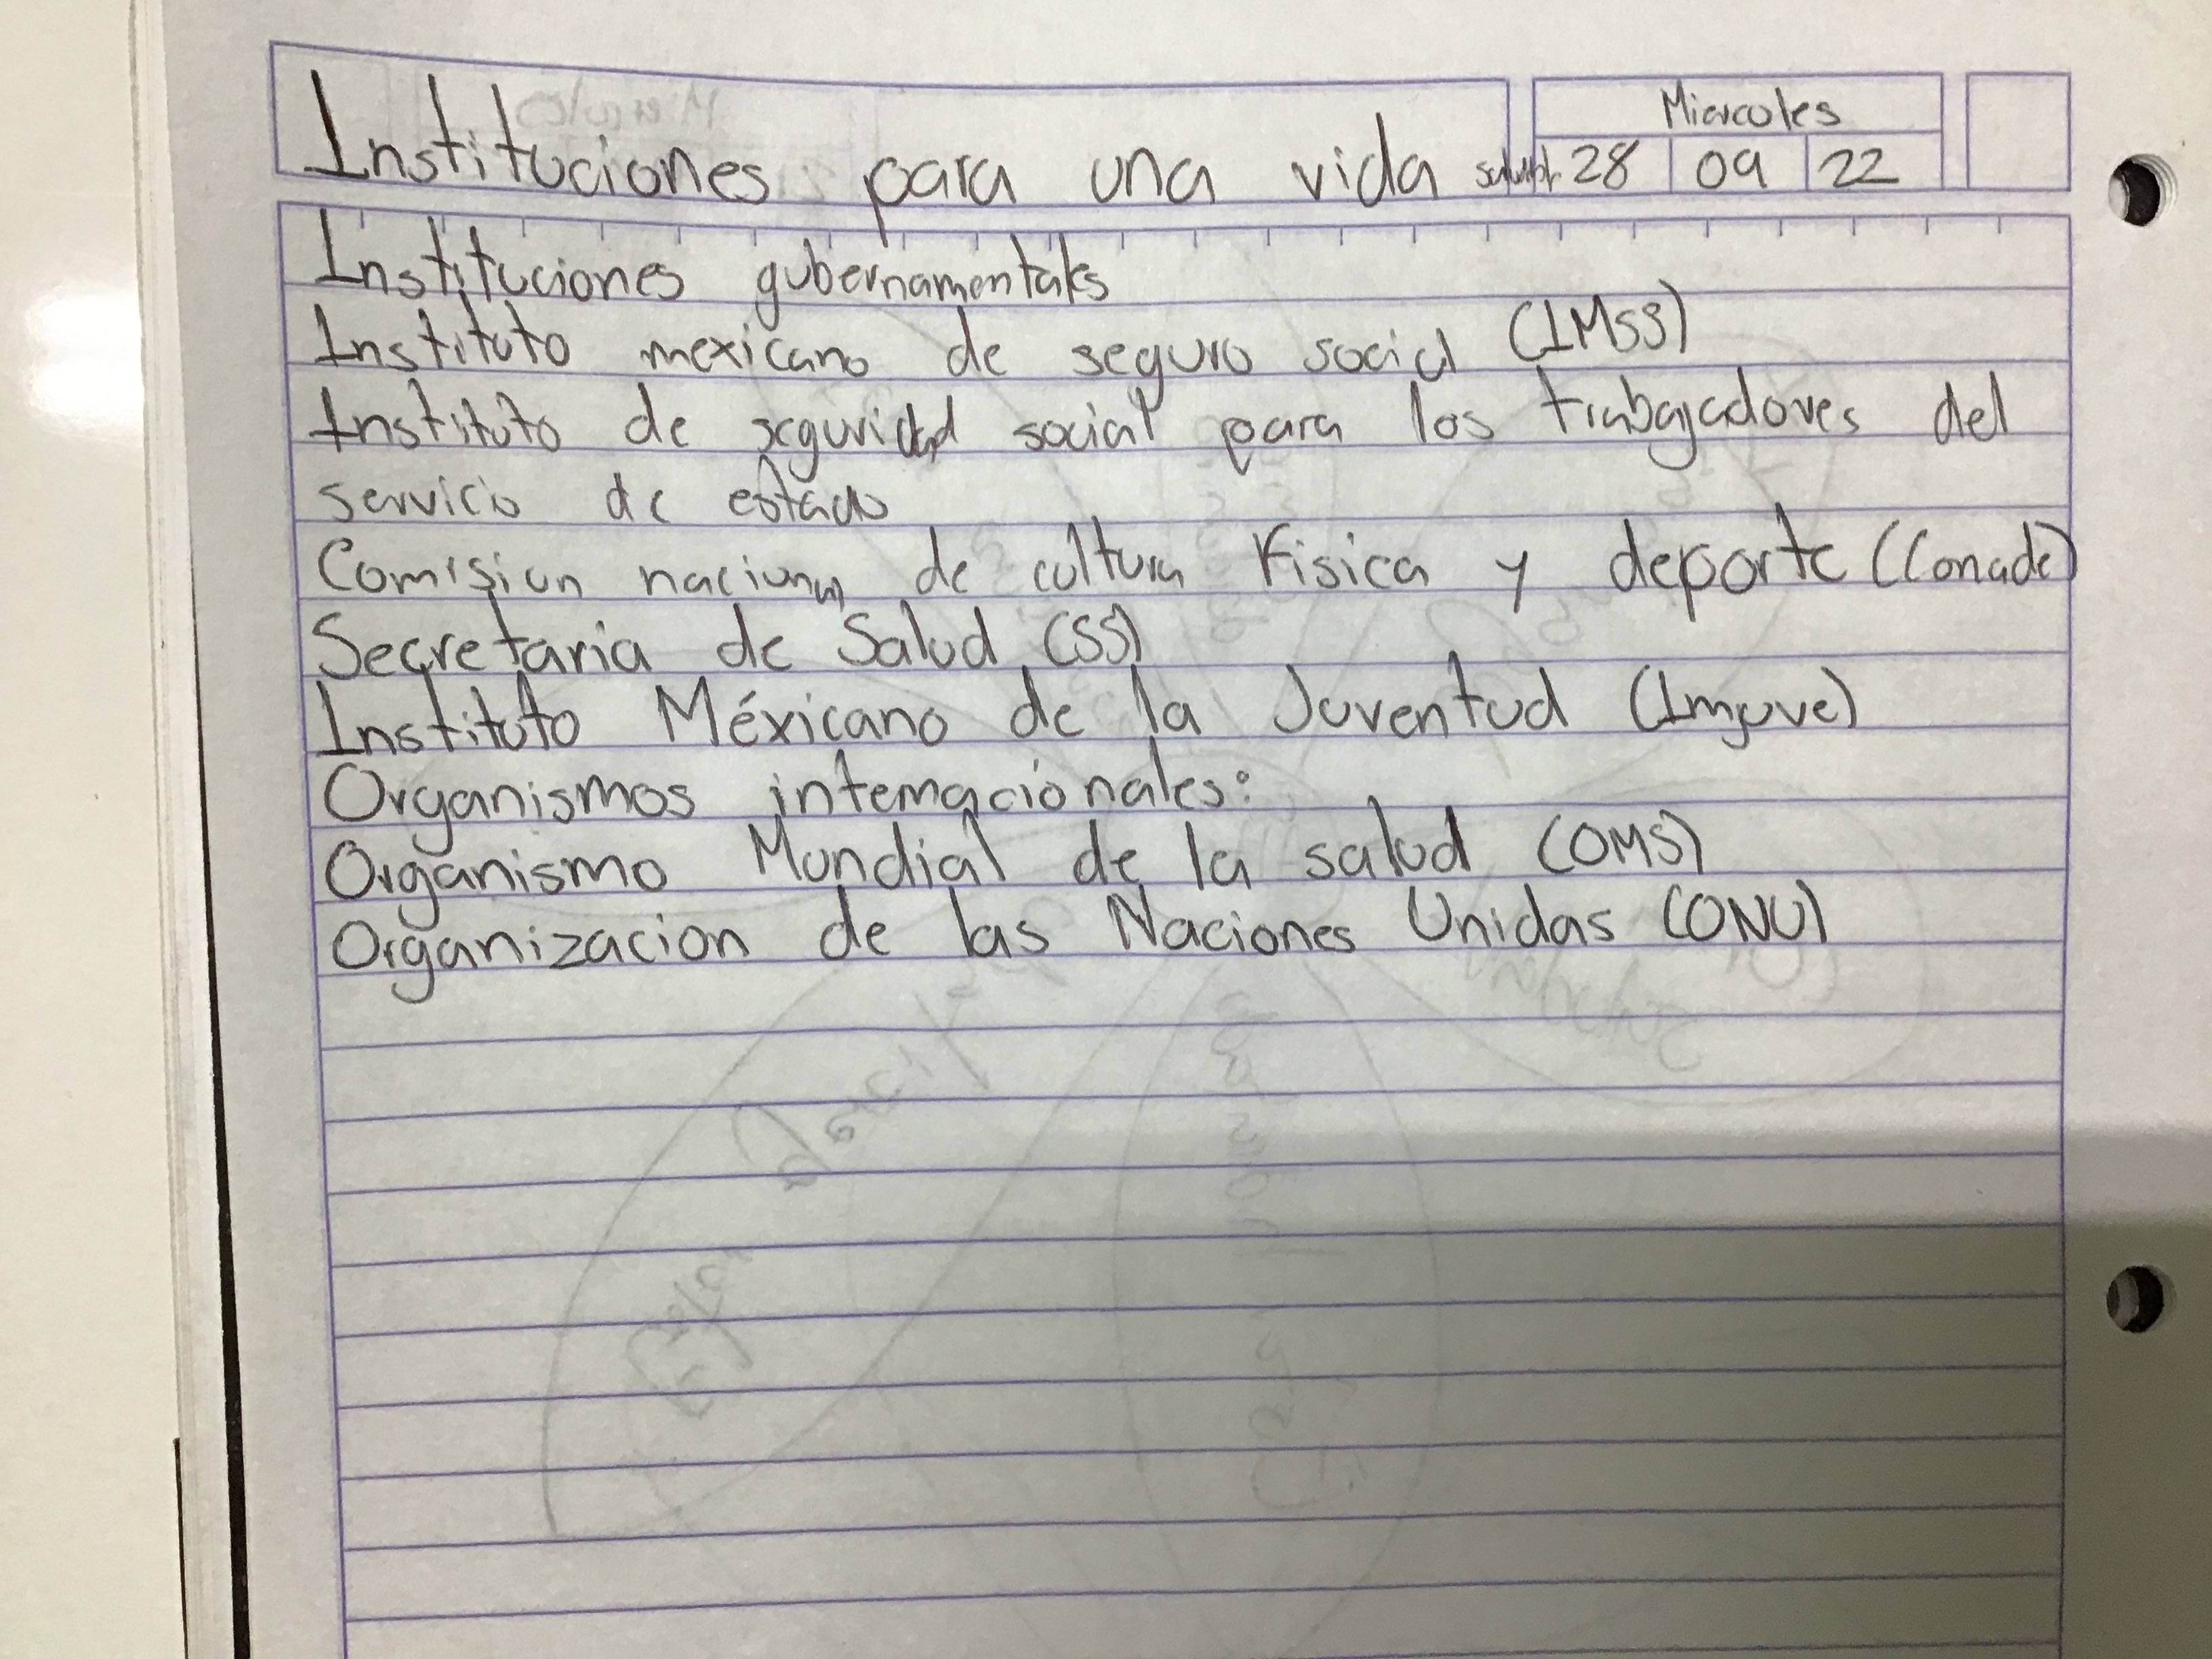 Miercoles
Instituciones para una vida 28 09 22
Instituciones gubernamentales
Instituto mexicano de seguro social (IMSS)
Instituto de seguridad social para los trabajadores del
servicio de estado
Comision nacional de cultura Fisica y deporte (Conade)
Secretaria de Salud (SS)
Instituto Méxicano de la Juventud (Imjuve)
Organismos internacionales:
Organismo Mundial de la salud (OMS)
Organizacion de las Naciones Unidas (ONU)